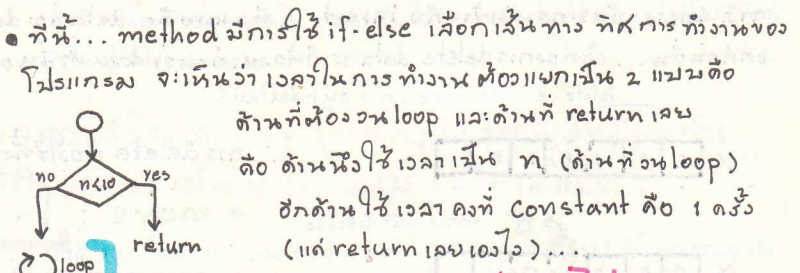 • ที่นี้... method มีการใช้ if-else เลือกเส้นทาง ทิศการทำงานของ
โปรแกรม จะเห็นว่าเวลาในการทำงานต้องแยกเป็น 2 แบบคือ
ด้านที่ต้องวน loop และด้านที่ return เลย
คือ ด้านนึงใช้เวลาเป็น n (ด้านที่วน loop)
อีกด้านใช้เวลาคงที่ constant คือ 1 ครั้ง
(แค่ return เลยเองไง)...
no n<10 yes
loop return